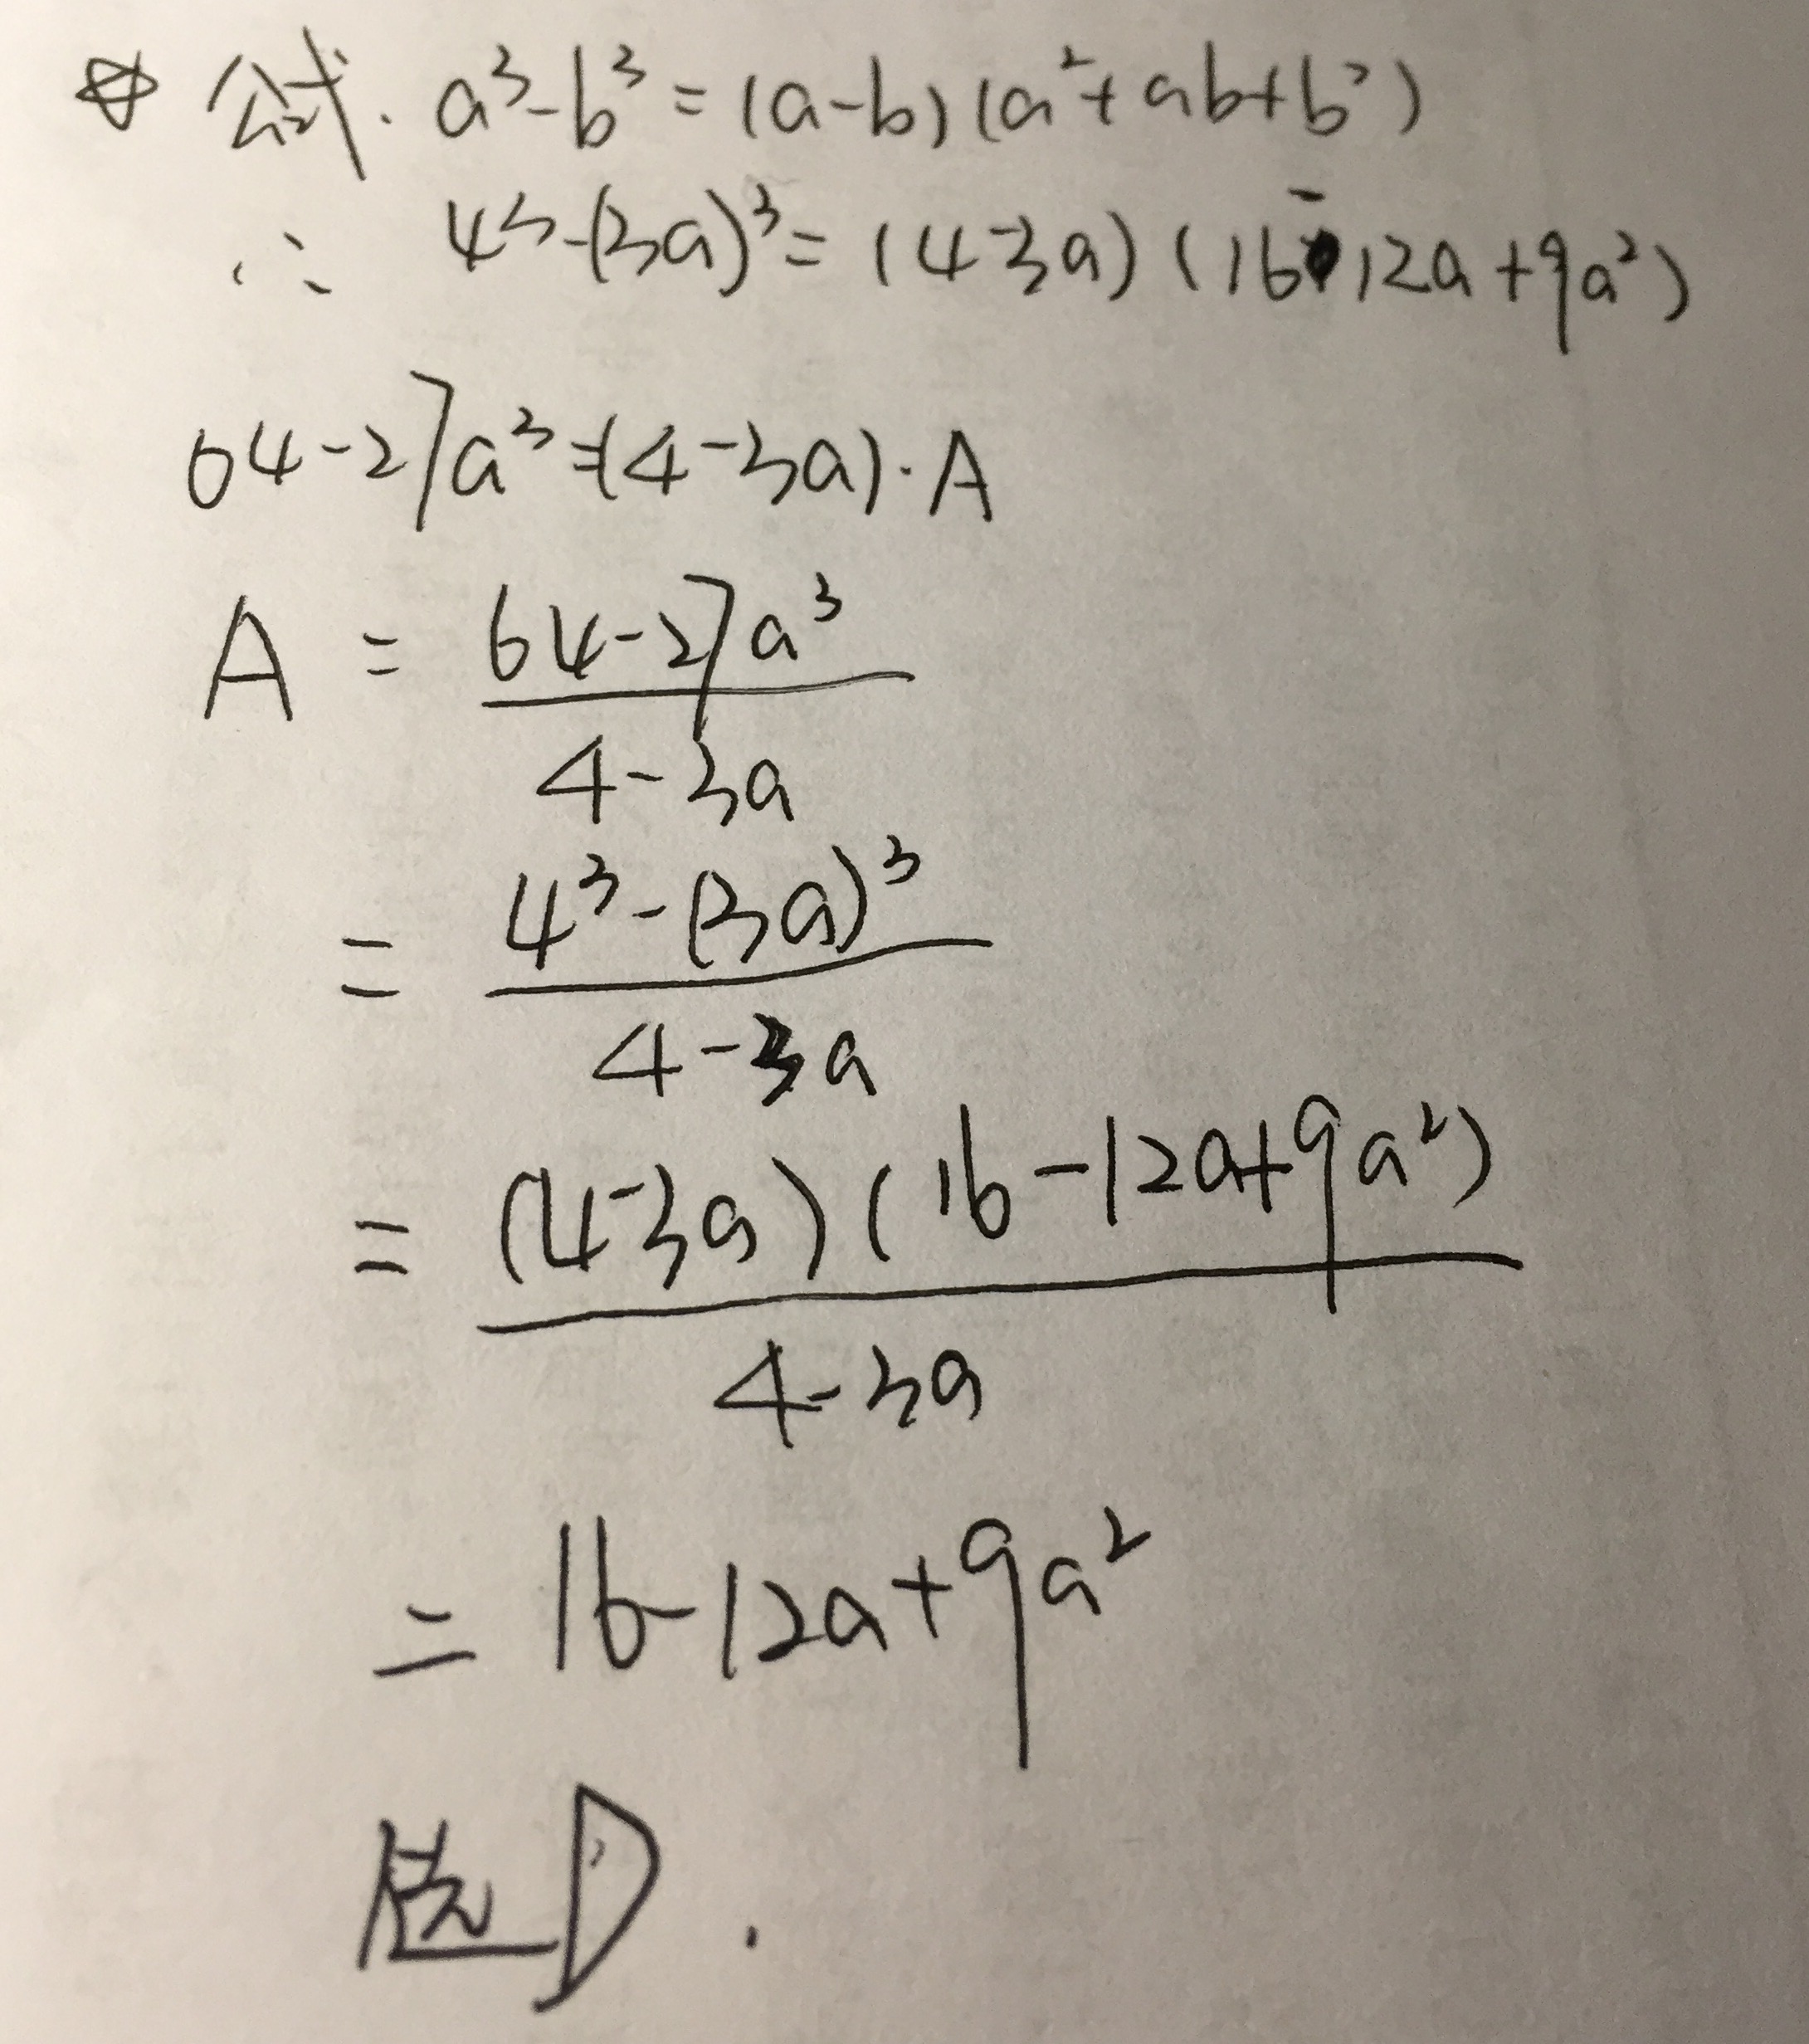 ☆ 公式. a³-b³=(a-b)(a²+ab+b²)
∴ 4³-(3a)³=(4-3a)(16-12a+9a²)
64-27a³=(4-3a)·A
A = \frac{64-27a³}{4-3a}
= \frac{4³-(3a)³}{4-3a}
= \frac{(4-3a)(16-12a+9a²)}{4-3a}
= 16-12a+9a²
选D.